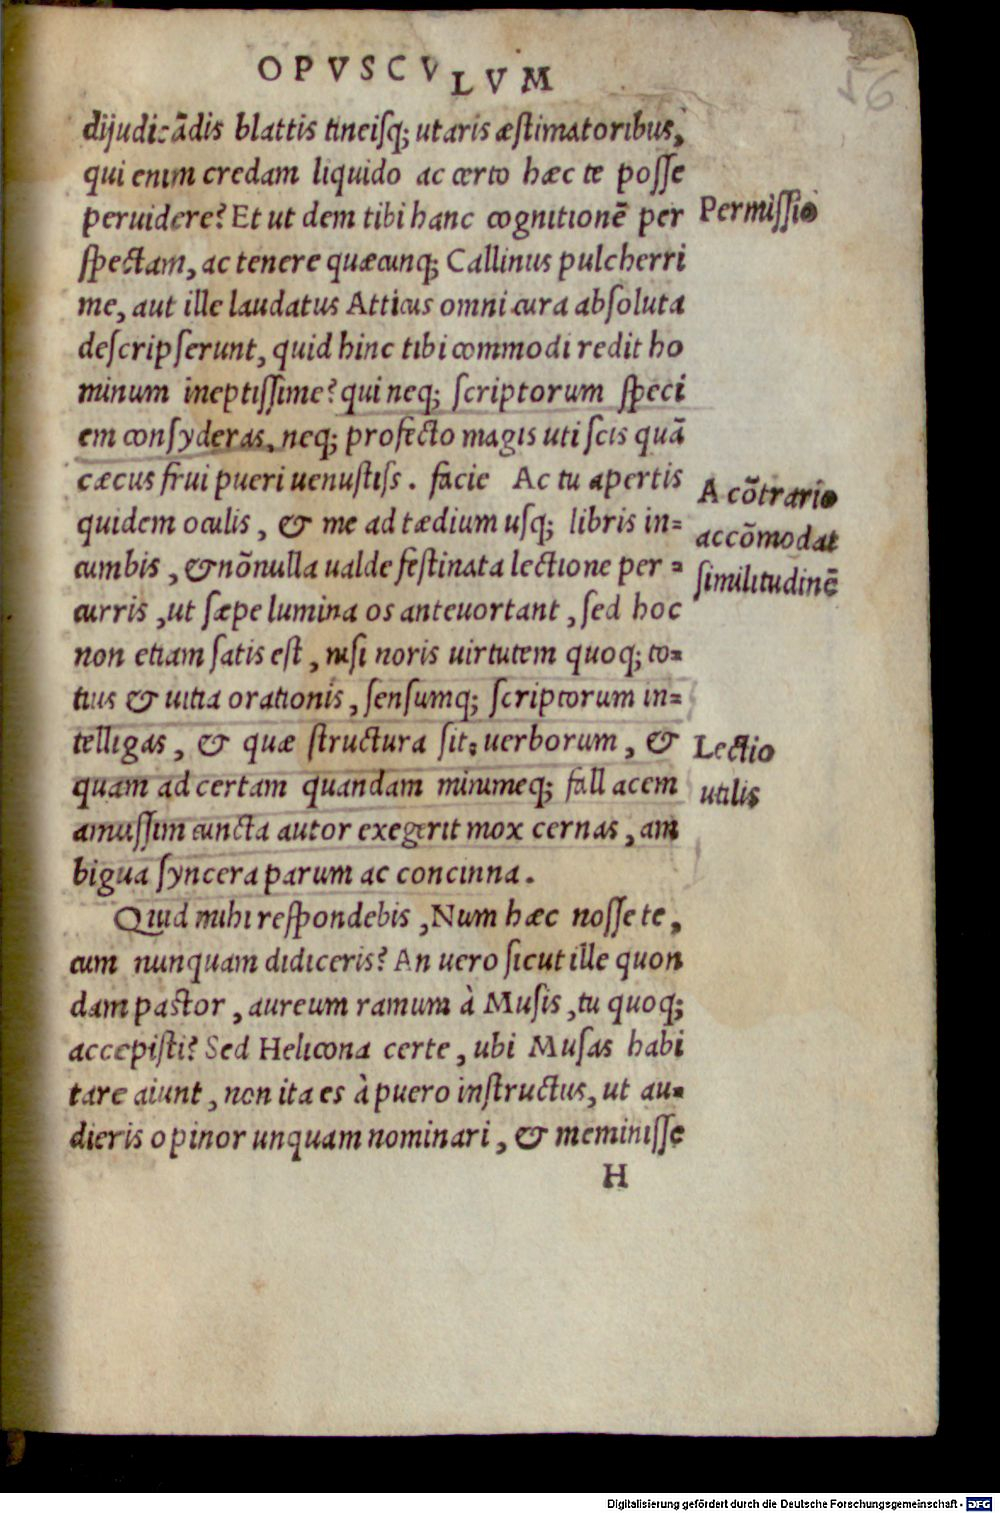 OPVSCVLVM
56
dijudicãdis blattis tineisq; utaris æstimatoribus,
qui enim credam liquido ac certo hæc te posse
peruidere? Et ut dem tibi hanc cognitionẽ per
Permissio
spectam, ac tenere quæcunq; Callinus pulcherri
me, aut ille laudatus Atticus omni cura absoluta
descripserunt, quid hinc tibi commodi redit ho
minum ineptissime? qui neq; scriptorum speci
em consyderas, neq; profecto magis uti scis quã
cæcus frui pueri uenustiss. facie Ac tu apertis
A cõtrario
quidem oculis, & me ad tædium usq; libris in=
accõmodat
cumbis, & nõnulla ualde festinata lectione per=
similitudinẽ
curris, ut sæpe lumina os anteuortant, sed hoc
non etiam satis est, nisi noris uirtutem quoq; to=
tius & uitia orationis, sensumq; scriptorum in=
telligas, & quæ structura sit, uerborum, &
Lectio
quam ad certam quandam minimeq; fallacem
utilis
amussim cuncta autor exegerit mox cernas, am
bigua syncera parum ac concinna.
Quid mihi respondebis, Num hæc nosse te,
cum nunquam didiceris? An uero sicut ille quon
dam pastor, aureum ramum à Musis, tu quoq;
accepisti? Sed Helicona certe, ubi Musas habi
tare aiunt, non ita es à puero instructus, ut au=
dieris opinor unquam nominari, & meminisse
H
Digitalisierung gefördert durch die Deutsche Forschungsgemeinschaft - DFG